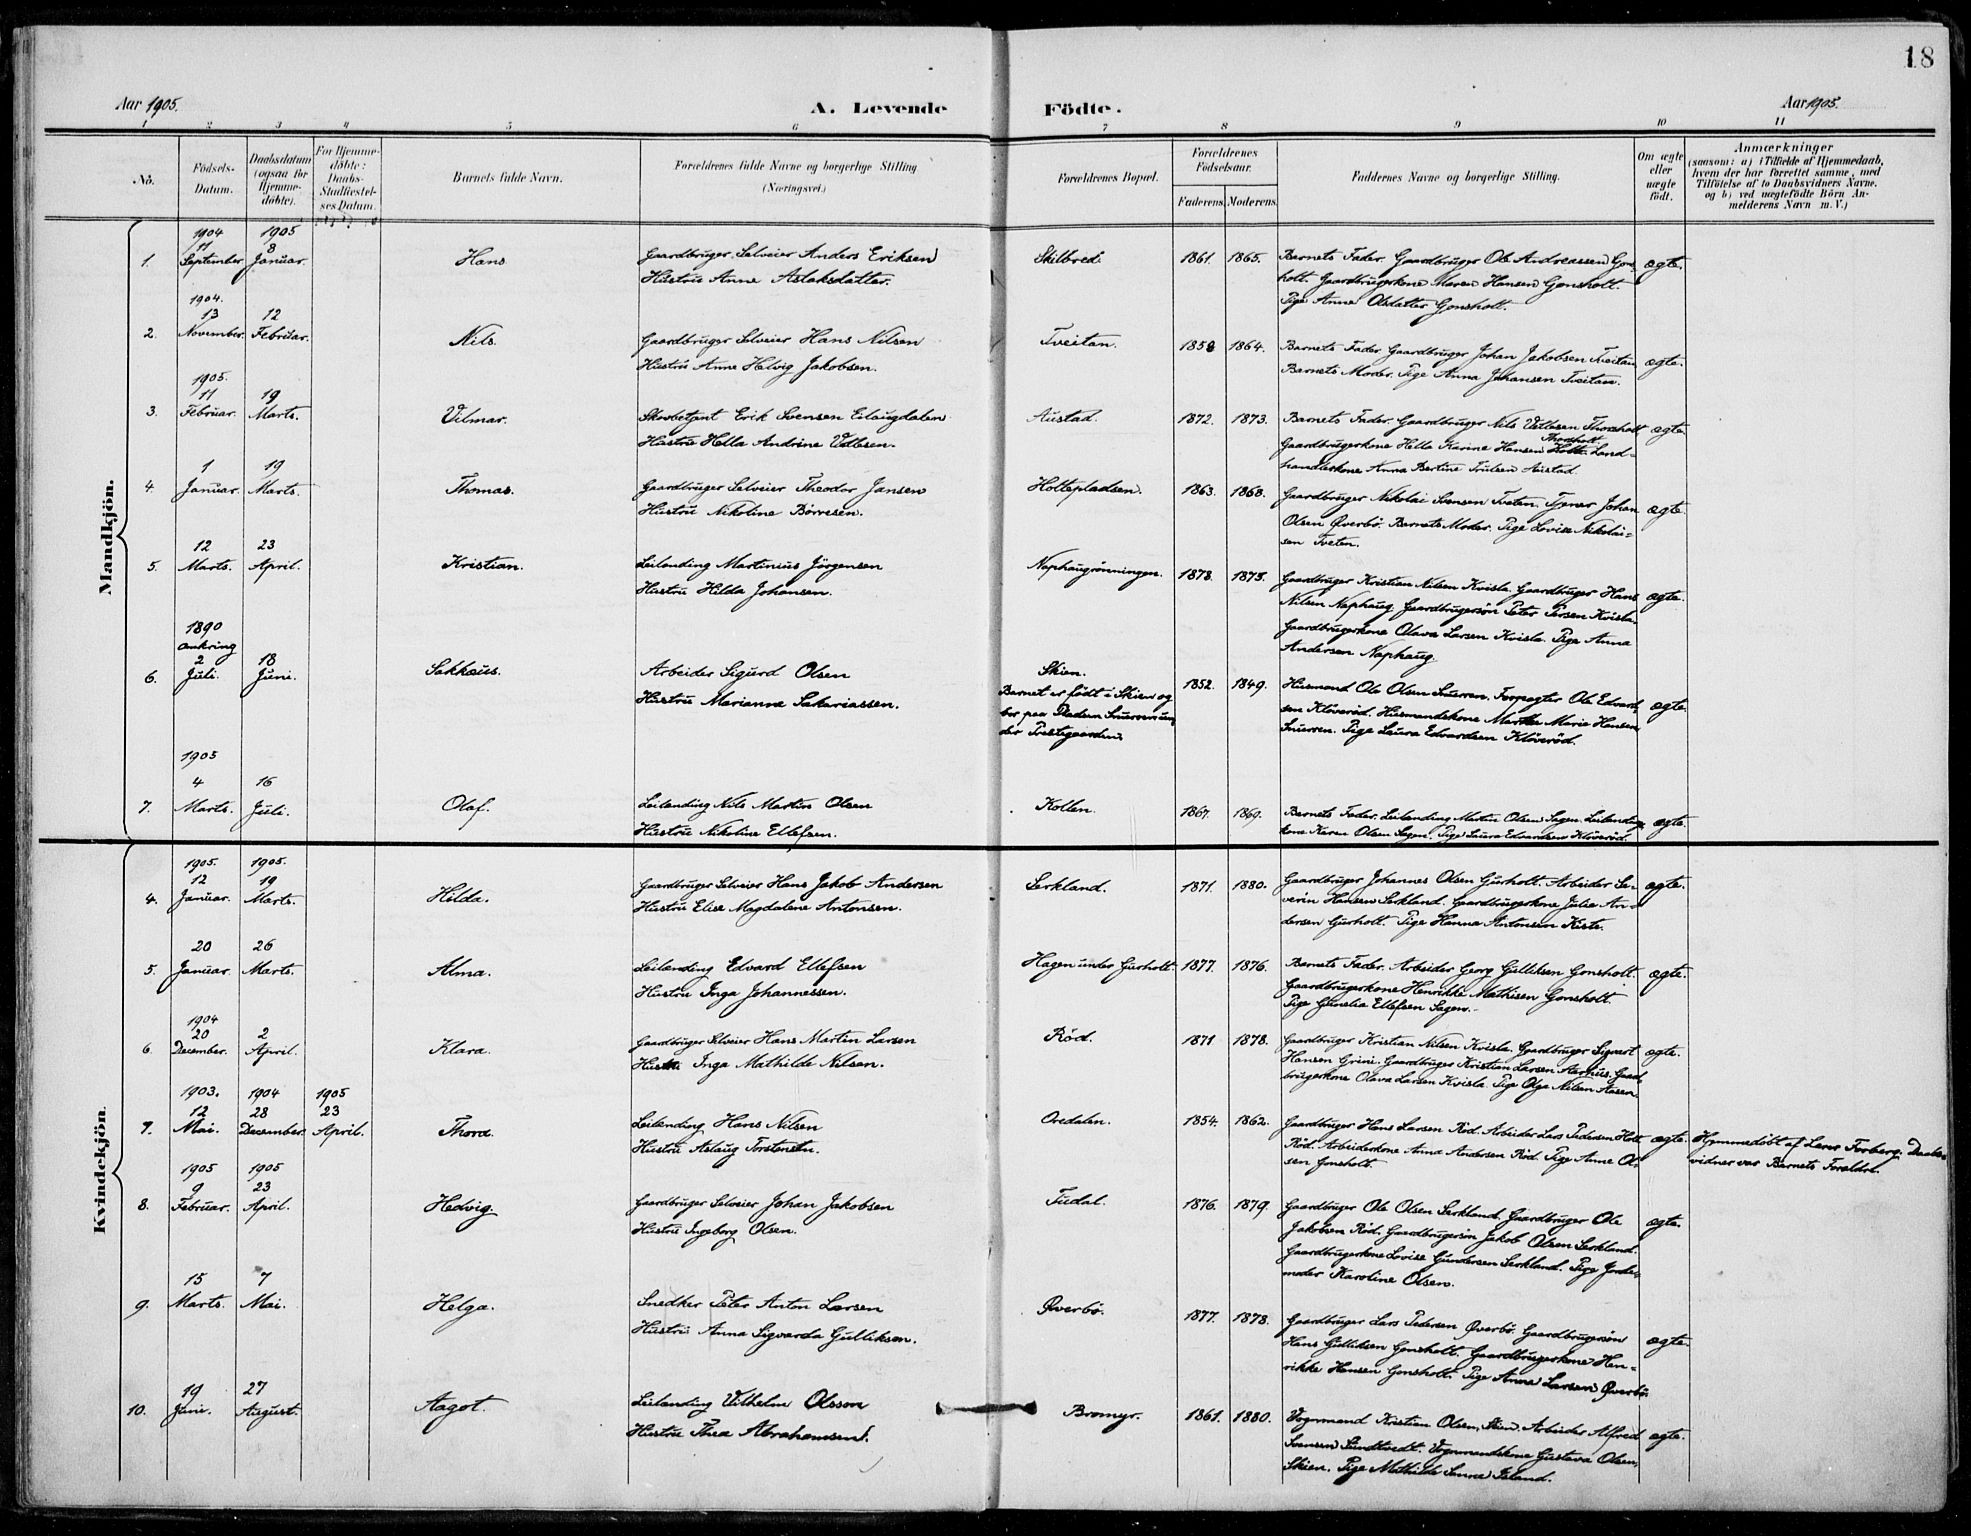 18
Aar 1905.
A. Levende Födte.
Aar 1905.
1 2 3 4 5 6 7 8 9 10 11
No.
Födsels-Datum.
Daabsdatum (ogsaa for Hjemme-döbte).
For Hjemme-döbte: Daabs-Stadfæstel-ses Datum.
Barnets fulde Navn.
Forældrenes fulde Navne og borgerlige Stilling (Næringsvei.)
Forældrenes Bopæl.
Forældrenes Födselsaar.
Faderens. Moderens.
Faddernes Navne og borgerlige Stilling.
Om ægte eller uægte födt.
Anmærkninger
(saasom: a) i Tilfælde af Hjemmedaab,
hvem der har forrettet samme, med
Tilföielse af to Daabsvidners Navne.
og b) ved uægtefödte Börn An-
melderens Navn m. V.)
Mandkjön.
1904 1905
11 8
1. September Januar. Hans Gaardbruger Selveier Anders Eriksen Skilbred. 1861. 1865. Barnets Fader. Gaardbruger Ole Andreassen Gons- ægte.
Hustru Anne Aslaksdatter. holt. Gaardbrugerkone Maren Hansen Gonsholt.
Pige Anne Olsdatter Gonsholt.
1904.
13 12
2. November. Februar. Nils. Gaardbruger Selveier Hans Nilsen Tveitan. 1858 1864. Barnets Fader. Gaardbruger Johan Jakobsen Tveitan ægte.
Hustru Anne Helvig Jakobsen. Barnets Moder. Pige Anna Johansen Tveitan.
1905.
11 19
3. Februar. Marts. Vilmar. Skovbetjent Erik Svensen Eilaugdalen Austad. 1872. 1873. Barnets Fader. Gaardbruger Nils Vetlesen Thorsholt ægte.
Hustru Hella Andrine Vetlesen. Gaardbrugerkone Hella Karine Hansen Thorsholt. Land-
handlerkone Anna Bertine Trulsen Austad.
1 19
4. Januar. Marts. Thomas. Gaardbruger Selveier Theodor Jansen Holtepladsen. 1863. 1868. Gaardbruger Nikolai Svensen Tveten. Tjener Johan ægte
Hustru Nikoline Börresen. Olsen Øverbö. Barnets Moder. Pige Lovise Nikolai-
sen Tveten.
12 23
5. Marts. April. Kristian. Leilending Martinius Jörgensen Naphaugrönningen. 1878. 1875. Gaardbruger Kristian Nilsen Kvisla. Gaardbruger Hans ægte.
Hustru Hilda Johansen. Nilsen Naphaug. Gaardbrugersön Peter Persen Kvisla.
Gaardbrugerkone Olava Larsen Kvisla. Pige Anna
Andersen Naphaug
1890
omkring
2 18
6. Juli. Juni. Sakkæus. Arbeider Sigurd Olsen Skien. 1852. 1849. Husmand Ole Olsen Snurren. Forpagter Ole Edvard- ægte.
Hustru Marianne Sakariassen. Barnet er födt i Skien og sen Klöveröd. Husmandskone Marthe Marie Hansen
bor paa Pladsen Snurren un- Snurren. Pige Laura Edvardsen Klöveröd.
der Prestegaarden.
1905
4 16
7. Marts. Juli. Olaf. Leilending Nils Martin Olsen Kollen. 1867. 1869. Barnets Fader. Leilending Martin Olsen Sagen. Leilending- ægte.
Hustru Nikoline Ellefsen. kone Karen Olsen Sagen. Pige Laura Edvardsen Klöveröd.
Kvindekjön.
1905. 1905.
12 19
4. Januar. Marts. Hilda. Gaardbruger Selveier Hans Jakob Andersen Serkland. 1871. 1880. Gaardbruger Johannes Olsen Gurholt. Arbeider Se- ægte.
Hustru Elise Magdalene Antonsen. verin Hansen Serkland. Gaardbrugerkone Julie An-
dersen Gurholt. Pige Hanna Antonsen Kiste.
20 26
5. Januar. Marts. Alma. Leilending Edvard Ellefsen Hagen under Gurholt. 1877. 1876. Barnets Fader. Arbeider Georg Gulliksen Gonsholt. ægte.
Hustru Inga Johannessen. Gaardbrugerkone Henrikke Mathisen Gonsholt.
Pige Gunelia Ellefsen Sagen.
1904
20 2
6. December. April. Klara. Gaardbruger Selveier Hans Martin Larsen Röd. 1871 1878. Gaardbruger Kristian Nilsen Kvisla. Gaardbruger Sigvart ægte.
Hustru Inga Mathilde Nilsen. Hansen Grini. Gaardbruger Kristian Larsen Aarhus. Gaard-
brugerkone Olava Larsen Kvisla. Pige Olga Nilsen Aasen.
1903. 1904 1905
12 28 23
7. Mai. December. April. Thora. Leilending Hans Nilsen Oredalen. 1854. 1862. Gaardbruger Hans Larsen Röd. Arbeider Lars Pedersen Holt ægte. Hjemmedöbt af Lærer Forberg. Daabs-
Hustru Aslaug Torstensen. Röd. Arbeiderkone Anna Andersen Röd. Pige Anne Ol- vidner var Barnets Forældre.
sen Gonsholt.
1905 1905
9 23
8. Februar. April. Hedvig. Gaardbruger Selveier Johan Jakobsen Tudal. 1876. 1879. Gaardbruger Ole Olsen Serkland. Gaardbruger Ole ægte.
Hustru Ingeborg Olsen. Jakobsen Röd. Gaardbrugersön Jakob Olsen Serkland.
Gaardbrugerkone Lovise Gundersen Serkland. Pige Jorde-
moder Karoline Olsen.
15 7
9. Marts. Mai. Helga. Snedker Peter Anton Larsen Øverbö. 1877. 1878. Gaardbruger Lars Pedersen Øverbö. Gaardbrugersön ægte.
Hustru Anna Sigvarda Gulliksen. Hans Gulliksen Gonsholt. Gaardbrugerkone Hen-
rikke Hansen Gonsholt. Pige Anna Larsen Øverbö.
19 27
10. Juni. August. Aagot. Leilending Vilhelm Olsson Bromyr. 1861. 1880. Vognmand Kristian Olsen, Skien. Arbeider Alfred ægte.
Hustru Thea Abrahamsen. Svensen Sundtvedt. Vognmandskone Gustava Olsen,
Skien. Pige Mathilde